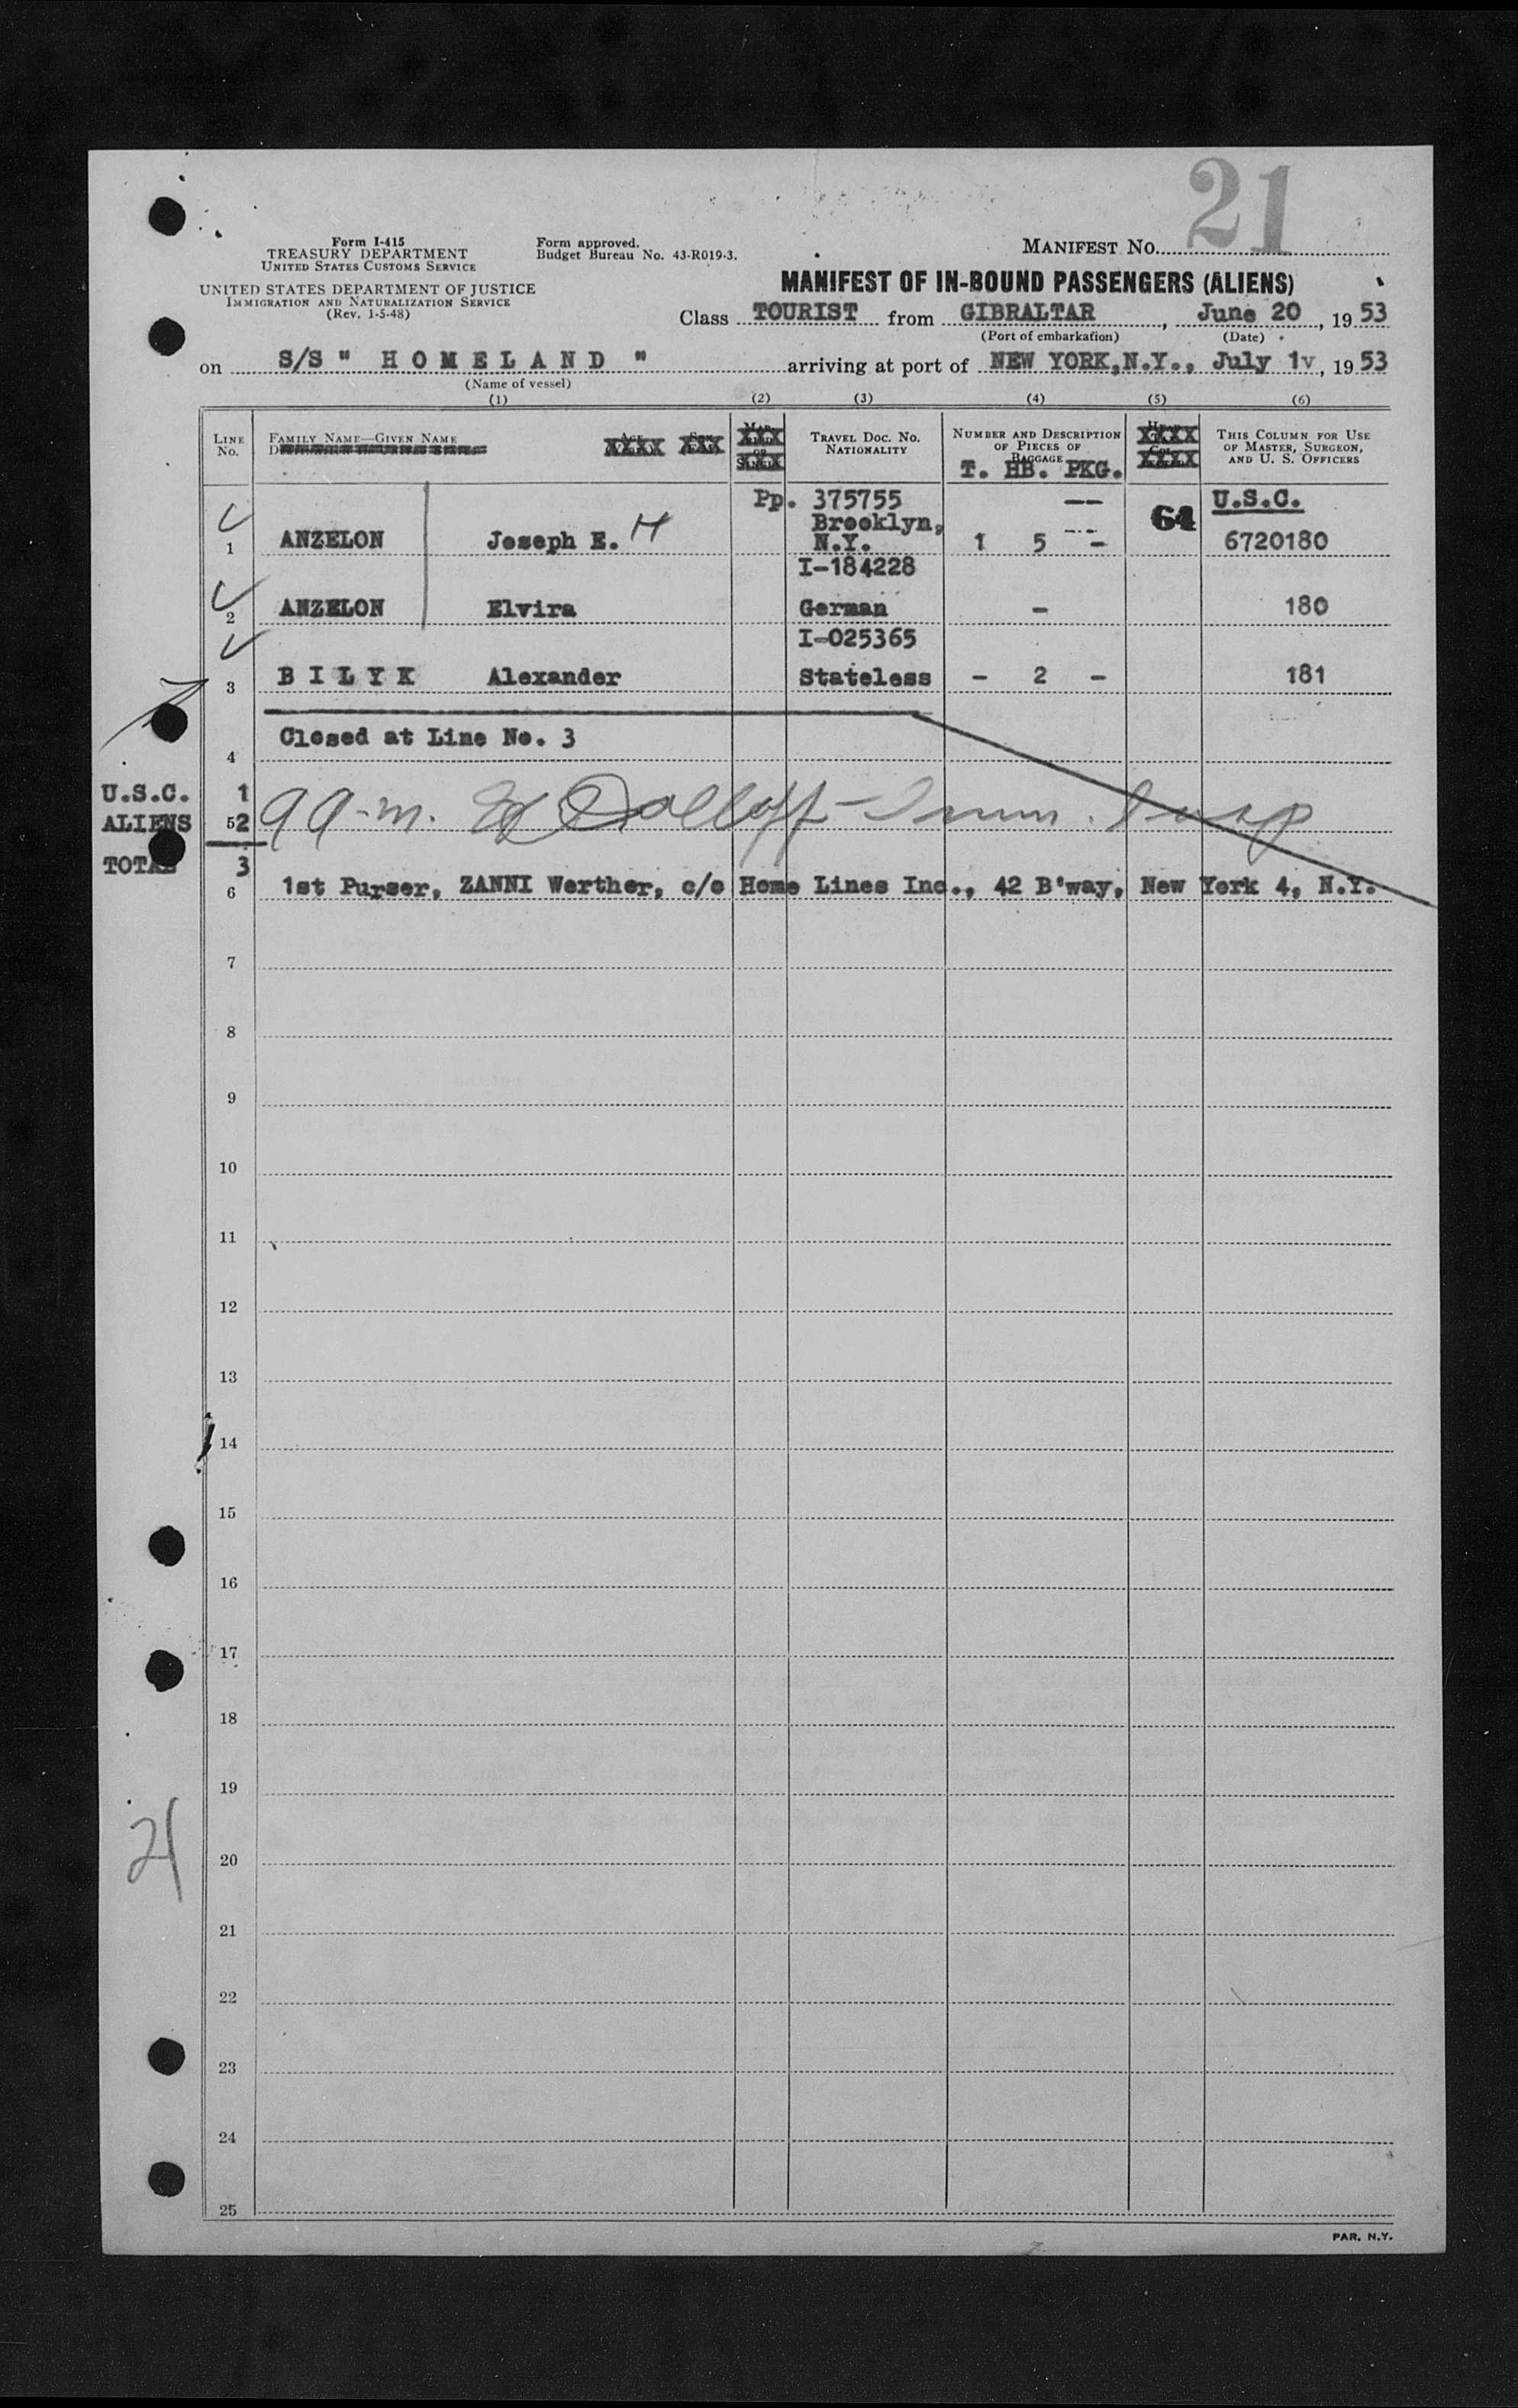 21
Form I-415
TREASURY DEPARTMENT
UNITED STATES CUSTOMS SERVICE
UNITED STATES DEPARTMENT OF JUSTICE
IMMIGRATION AND NATURALIZATION SERVICE
(Rev. 1-5-48)
Form approved.
Budget Bureau No. 43-R019-3.
MANIFEST NO.
MANIFEST OF IN-BOUND PASSENGERS (ALIENS)
Class TOURIST from GIBRALTAR, June 20, 1953
(Port of embarkation) (Date)
on S/S " H O M E L A N D " arriving at port of NEW YORK,N.Y., July 1v, 1953
(Name of vessel)
(1) (2) (3) (4) (5) (6)
LINE No.
FAMILY NAME—GIVEN NAME
XXXX XXX
XXX
XXX
TRAVEL DOC. NO. NATIONALITY
NUMBER AND DESCRIPTION OF PIECES OF BAGGAGE
T. HB. PKG.
XXXX
XXXX
THIS COLUMN FOR USE OF MASTER, SURGEON, AND U. S. OFFICERS
Pp. 375755 -- U.S.C.
Brooklyn, 64
1 ANZELON Joseph E. H N.Y. 1 5 - 6720180
I-184228
2 ANZELON Elvira German - 180
I-025365
3 B I L Y K Alexander Stateless - 2 - 181
Closed at Line No. 3
4
U.S.C. 1
ALIENS 5 2
TOTAL 3
6 1st Purser, ZANNI Werther, c/o Home Lines Inc., 42 B'way, New York 4, N.Y.
7
8
9
10
11
12
13
14
15
16
17
18
19
21
20
21
22
23
24
25
PAR. N.Y.